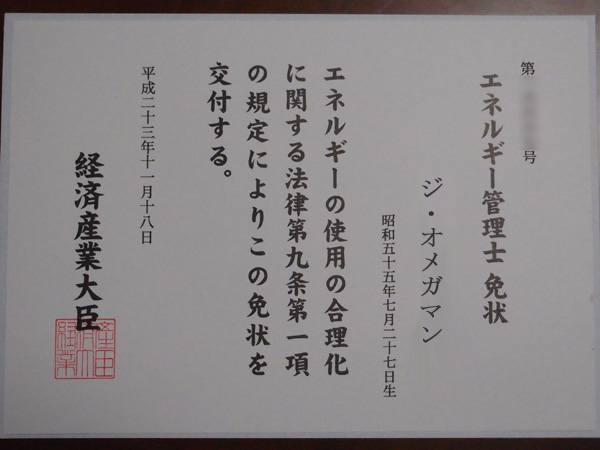 第 号
エネルギー管理士 免状
ジ・オメガマン
昭和五十五年七月二十七日生
エネルギーの使用の合理化
に関する法律第九条第一項
の規定によりこの免状を
交付する。
平成二十三年十一月十八日
経済産業大臣